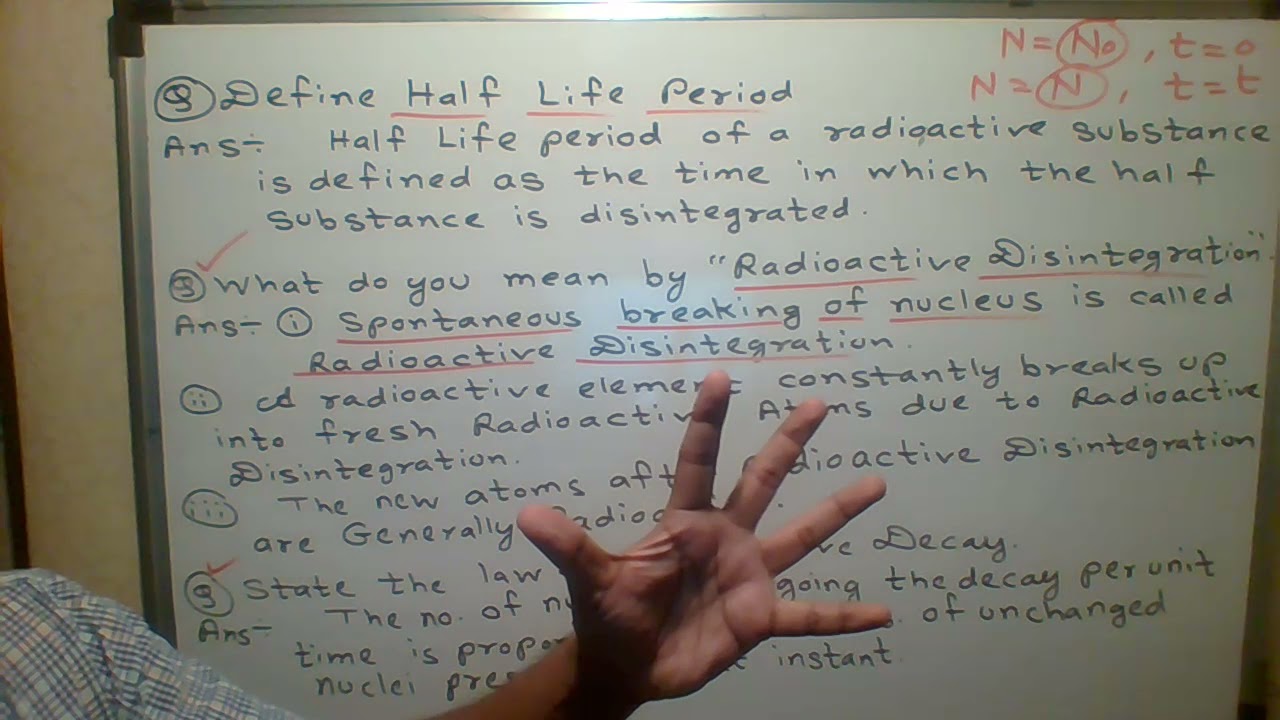 N = N₀ , t = 0
N = N , t = t
Q Define Half Life Period
Ans:- Half Life period of a radioactive substance
is defined as the time in which the half
substance is disintegrated.
Q What do you mean by "Radioactive Disintegration"
Ans:- i Spontaneous breaking of nucleus is called
Radioactive Disintegration.
ii A radioactive element constantly breaks up
into fresh Radioactive Atoms due to Radioactive
Disintegration.
iii The new atoms after Radioactive Disintegration
are Generally
Q State the law Decay.
Ans- The no. of going the decay per unit
time is of unchanged
nuclei instant.